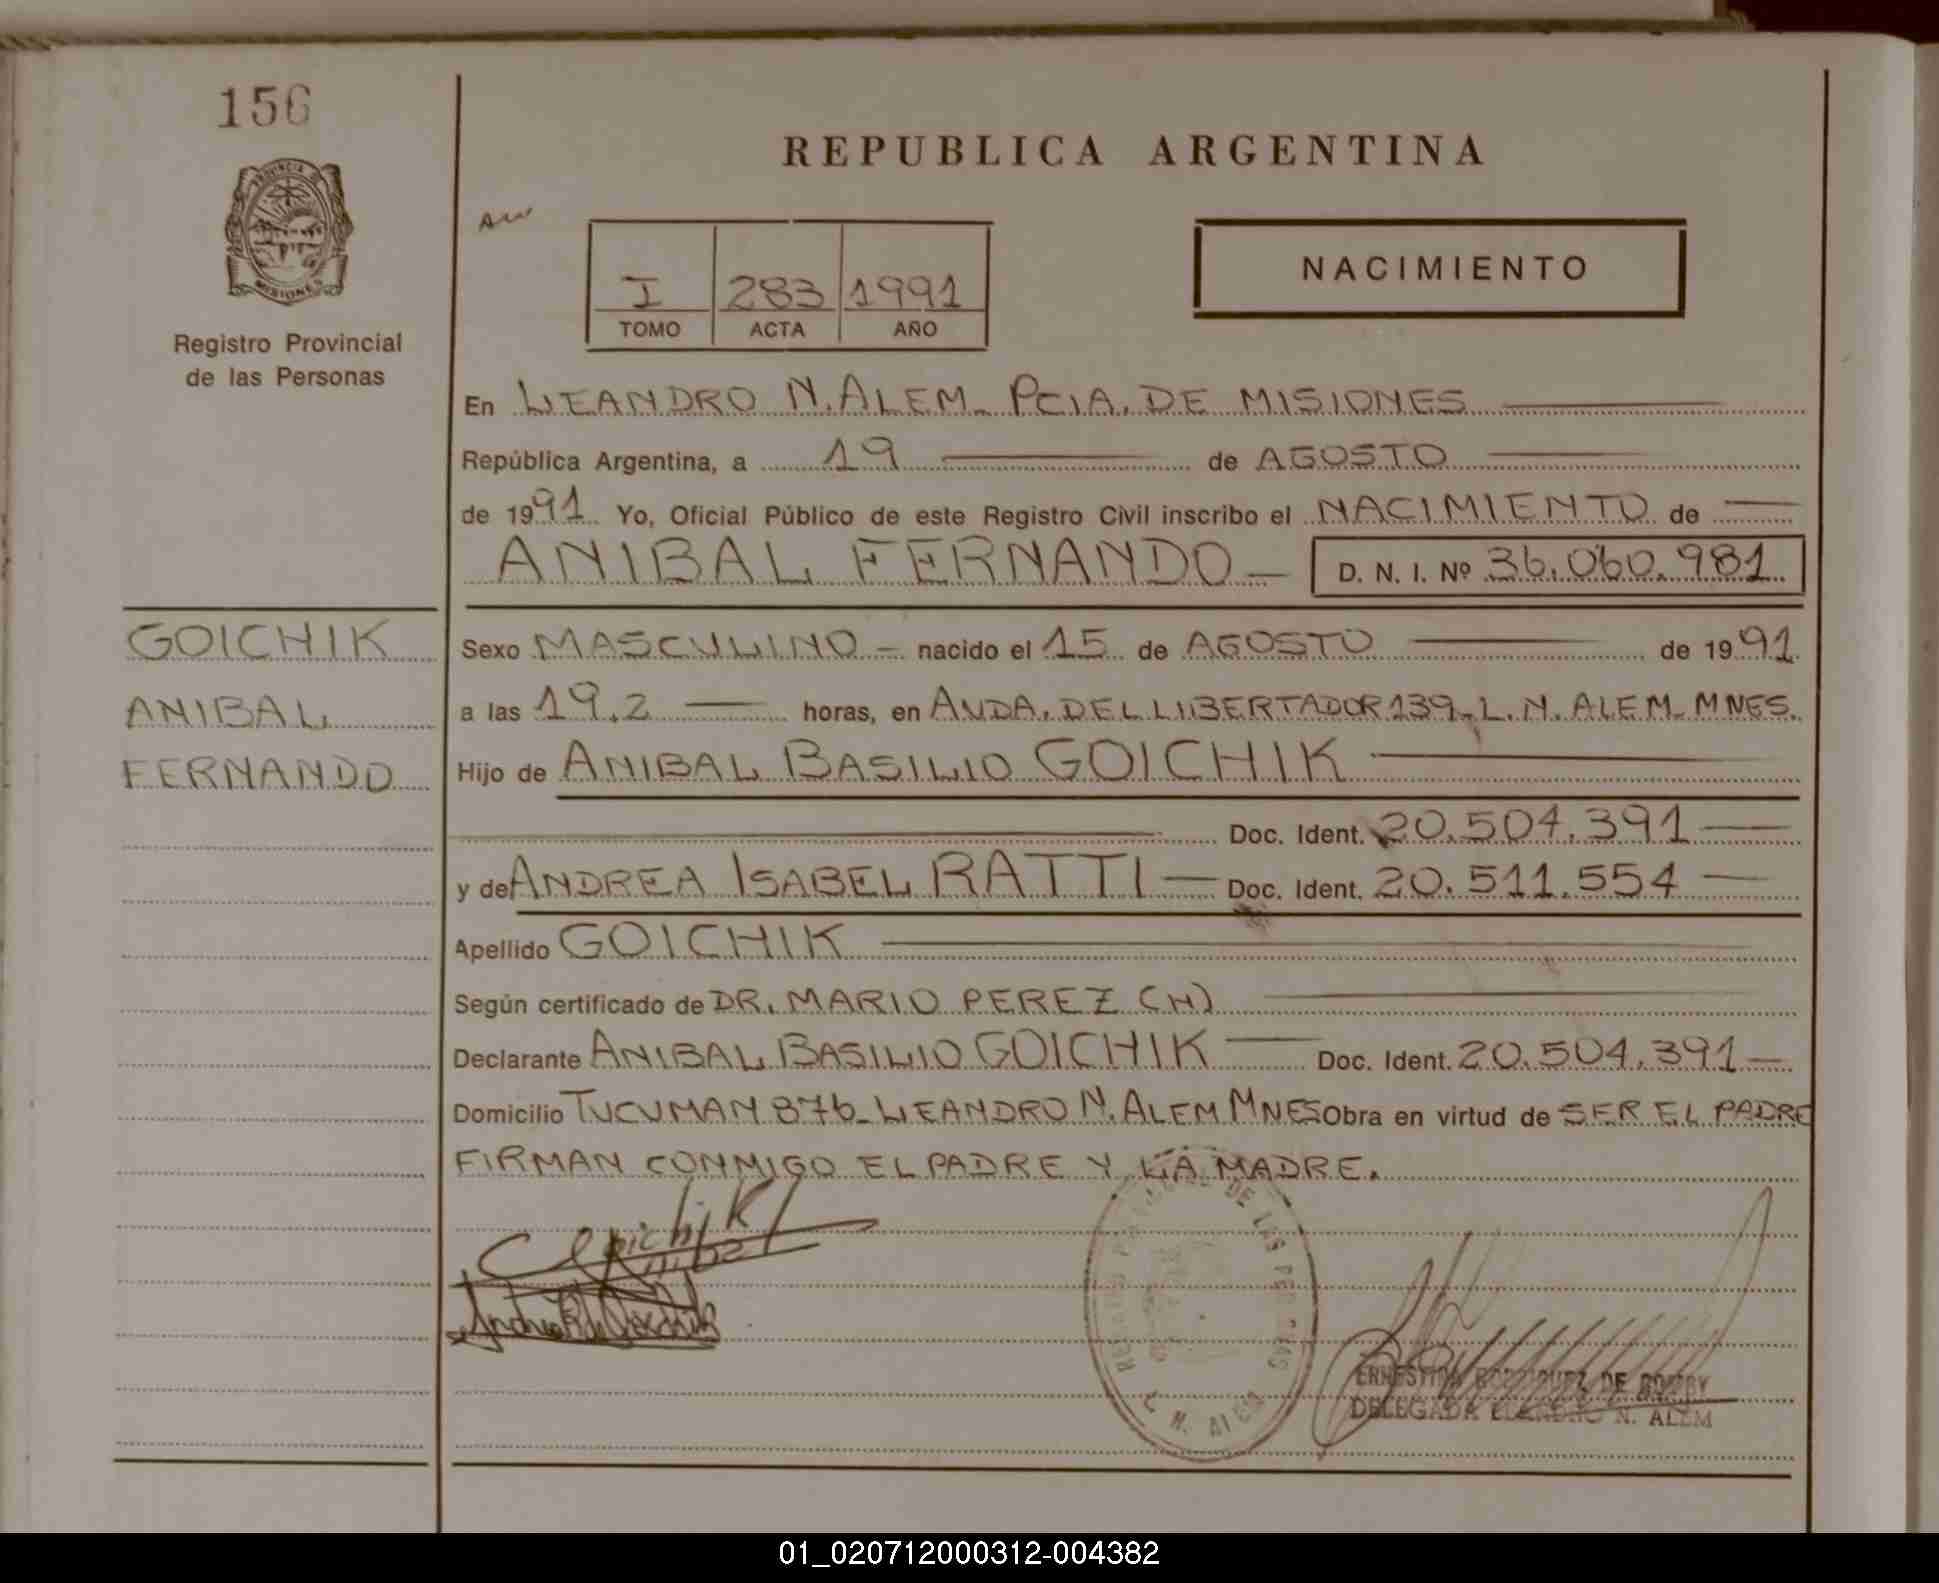 156
PROVINCIA DE
MISIONES
Registro Provincial
de las Personas
REPUBLICA ARGENTINA
I 283 1991
TOMO ACTA AÑO
NACIMIENTO
En LEANDRO N. ALEM_ PCIA. DE MISIONES
República Argentina, a 19 de AGOSTO
de 1991 Yo, Oficial Público de este Registro Civil inscribo el NACIMIENTO de
ANIBAL FERNANDO D. N. I. Nº 36.060.981
GOICHIK
ANIBAL
FERNANDO
Sexo MASCULINO nacido el 15 de AGOSTO de 1991
a las 19.2 horas, en AVDA. DEL LIBERTADOR 139_ L. N. ALEM_ MNES.
Hijo de ANIBAL BASILIO GOICHIK
Doc. Ident. 20.504.391
y de ANDREA ISABEL RATTI Doc. Ident. 20.511.554
Apellido GOICHIK
Según certificado de DR. MARIO PEREZ (H)
Declarante ANIBAL BASILIO GOICHIK Doc. Ident. 20.504.391
Domicilio TUCUMAN 876_ LEANDRO N. ALEM MNES Obra en virtud de SER EL PADRE
FIRMAN CONMIGO EL PADRE Y LA MADRE.
DE LAS PERSONAS
L. N. ALEM
ERNESTINA RODRIGUEZ DE
DELEGADA LEANDRO N. ALEM
01_020712000312-004382